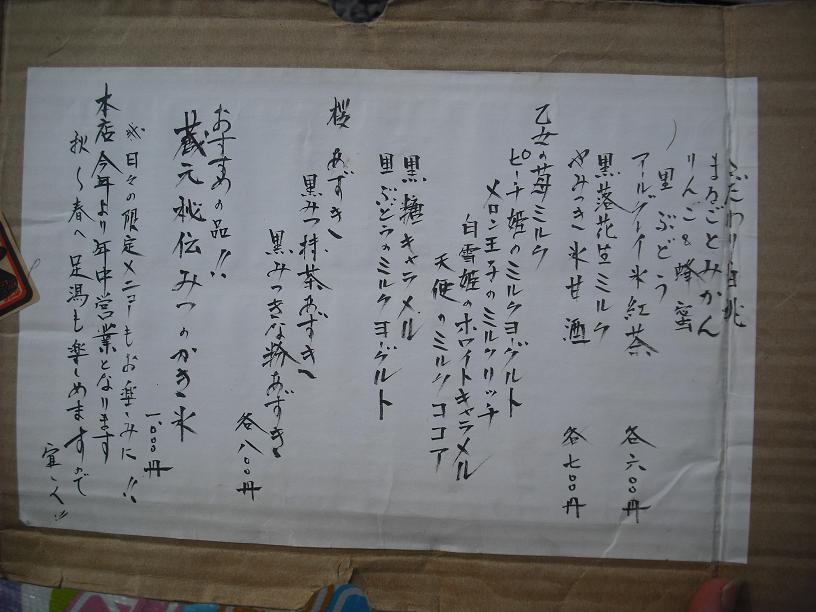 こだわり白桃
まるごとみかん
りんご&蜂蜜
黒ぶどう
アールグレイ氷紅茶
各六〇〇円
黒落花生ミルク
やみつき氷甘酒
各七〇〇円
乙女の苺ミルク
ピーチ姫のミルクヨーグルト
メロン王子のミルクリッチ
白雪姫のホワイトキャラメル
天使のミルクココア
黒糖キャラメル
黒ぶどうのミルクヨーグルト
桜あずき
黒みつ抹茶あずき
黒みつきな粉あずき
各八〇〇円
おすすめの品!!
蔵元秘伝みつのかき氷
一、〇〇〇円
日々の限定メニューもお楽しみに!!
本店今年より年中営業となります
秋〜春へ足湯も楽しめますので